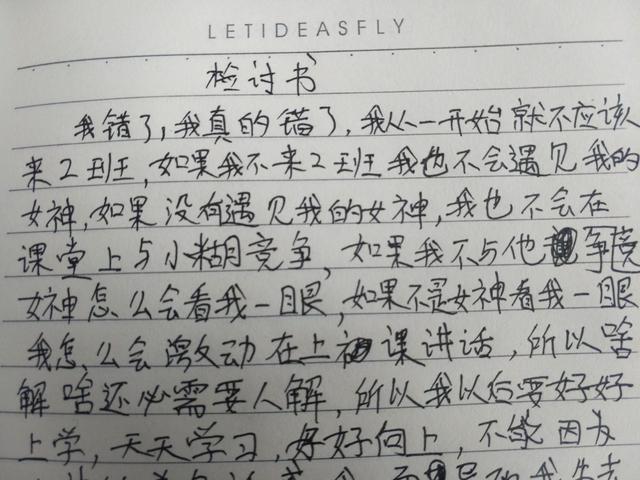 LETIDEASFLY
检讨书
我错了,我真的错了,我从一开始就不应该
来2班,如果我不来2班我也不会遇见我的
女神,如果没有遇见我的女神,我也不会在
课堂上与小糊竞争,如果我不与他争竞
女神怎么会看我一眼,如果不是女神看我一眼
我怎么会激动在上课讲话,所以啥
解啥还必需要人解,所以我以后要好好
上学,天天学习,好好向上,不能因为